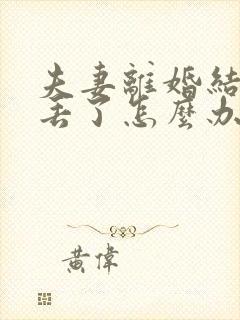 夫妻離婚結
丟了怎麼办
黃偉